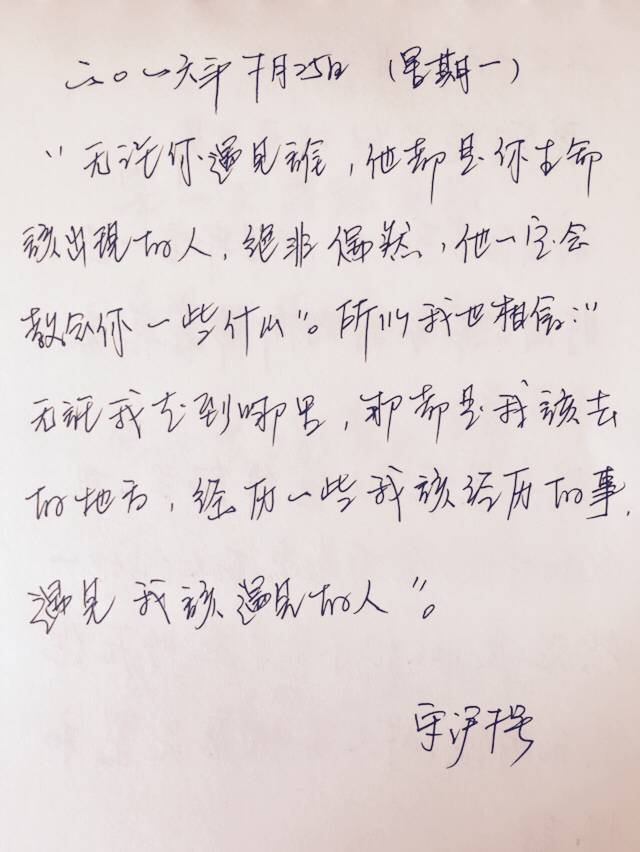 二〇一六年十月25日（星期一）
“无论你遇見誰，他都是你生命
該出現的人，绝非偶然，他一定会
教会你一些什么”。所以我也相信：“
无論我走到哪里，那都是我該去
的地方，经历一些我該经历的事，
遇見我該遇見的人”。